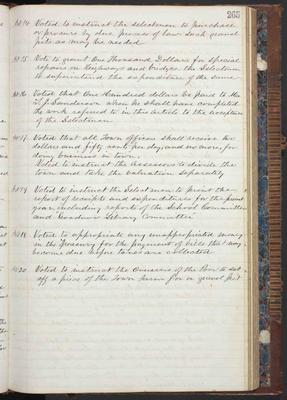 265
Art 14 Voted to instruct the selectmen to purchase
or procure by due process of law such gravel
pits as may be needed.
Art 15. Vote to grant One Thousand Dollars for Special
repairs on Highways and bridges the Selectmen
to superintend the expenditure of the same
Art 16 Voted that One Hundred dollars be paid to Mr
Sanderson when he shall have completed
the work refered to in this article to the acceptance
of the Selectmen
Art 17 Voted that all Town officers shall receive two
dollars and fifty cents per day, and no more, for
doing business in town.
Voted to instruct the assessors to divide the
town and take the valuation separately
Voted to instruct the Selectmen to print the
report of receipts and expenditures for the present
year including reports of the School Committee
and Goodwin Library Committee
Art 18 Voted to appropriate any unappropriated money
in the Treasury for the payment of bills that may
become due before taxes are collected
Art 20 Voted to instruct the Overseers of the Poor to set
off a piece of the Town farm for a gravel pit